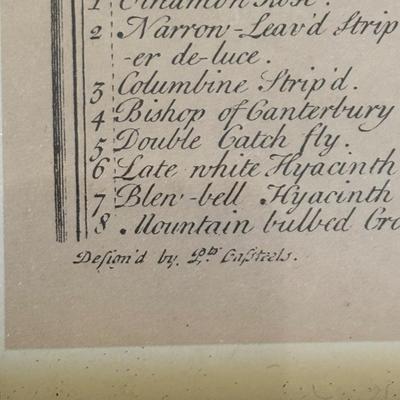 1 Cinnamon Rose.
2 Narrow-Leav'd Strip
-er de-luce.
3 Columbine Strip'd.
4 Bishop of Canterbury
5 Double Catch fly.
6 Late white Hyacinth
7 Blew-bell Hyacinth
8 Mountain bulbed Cro
Design'd by Pr. Casteels.